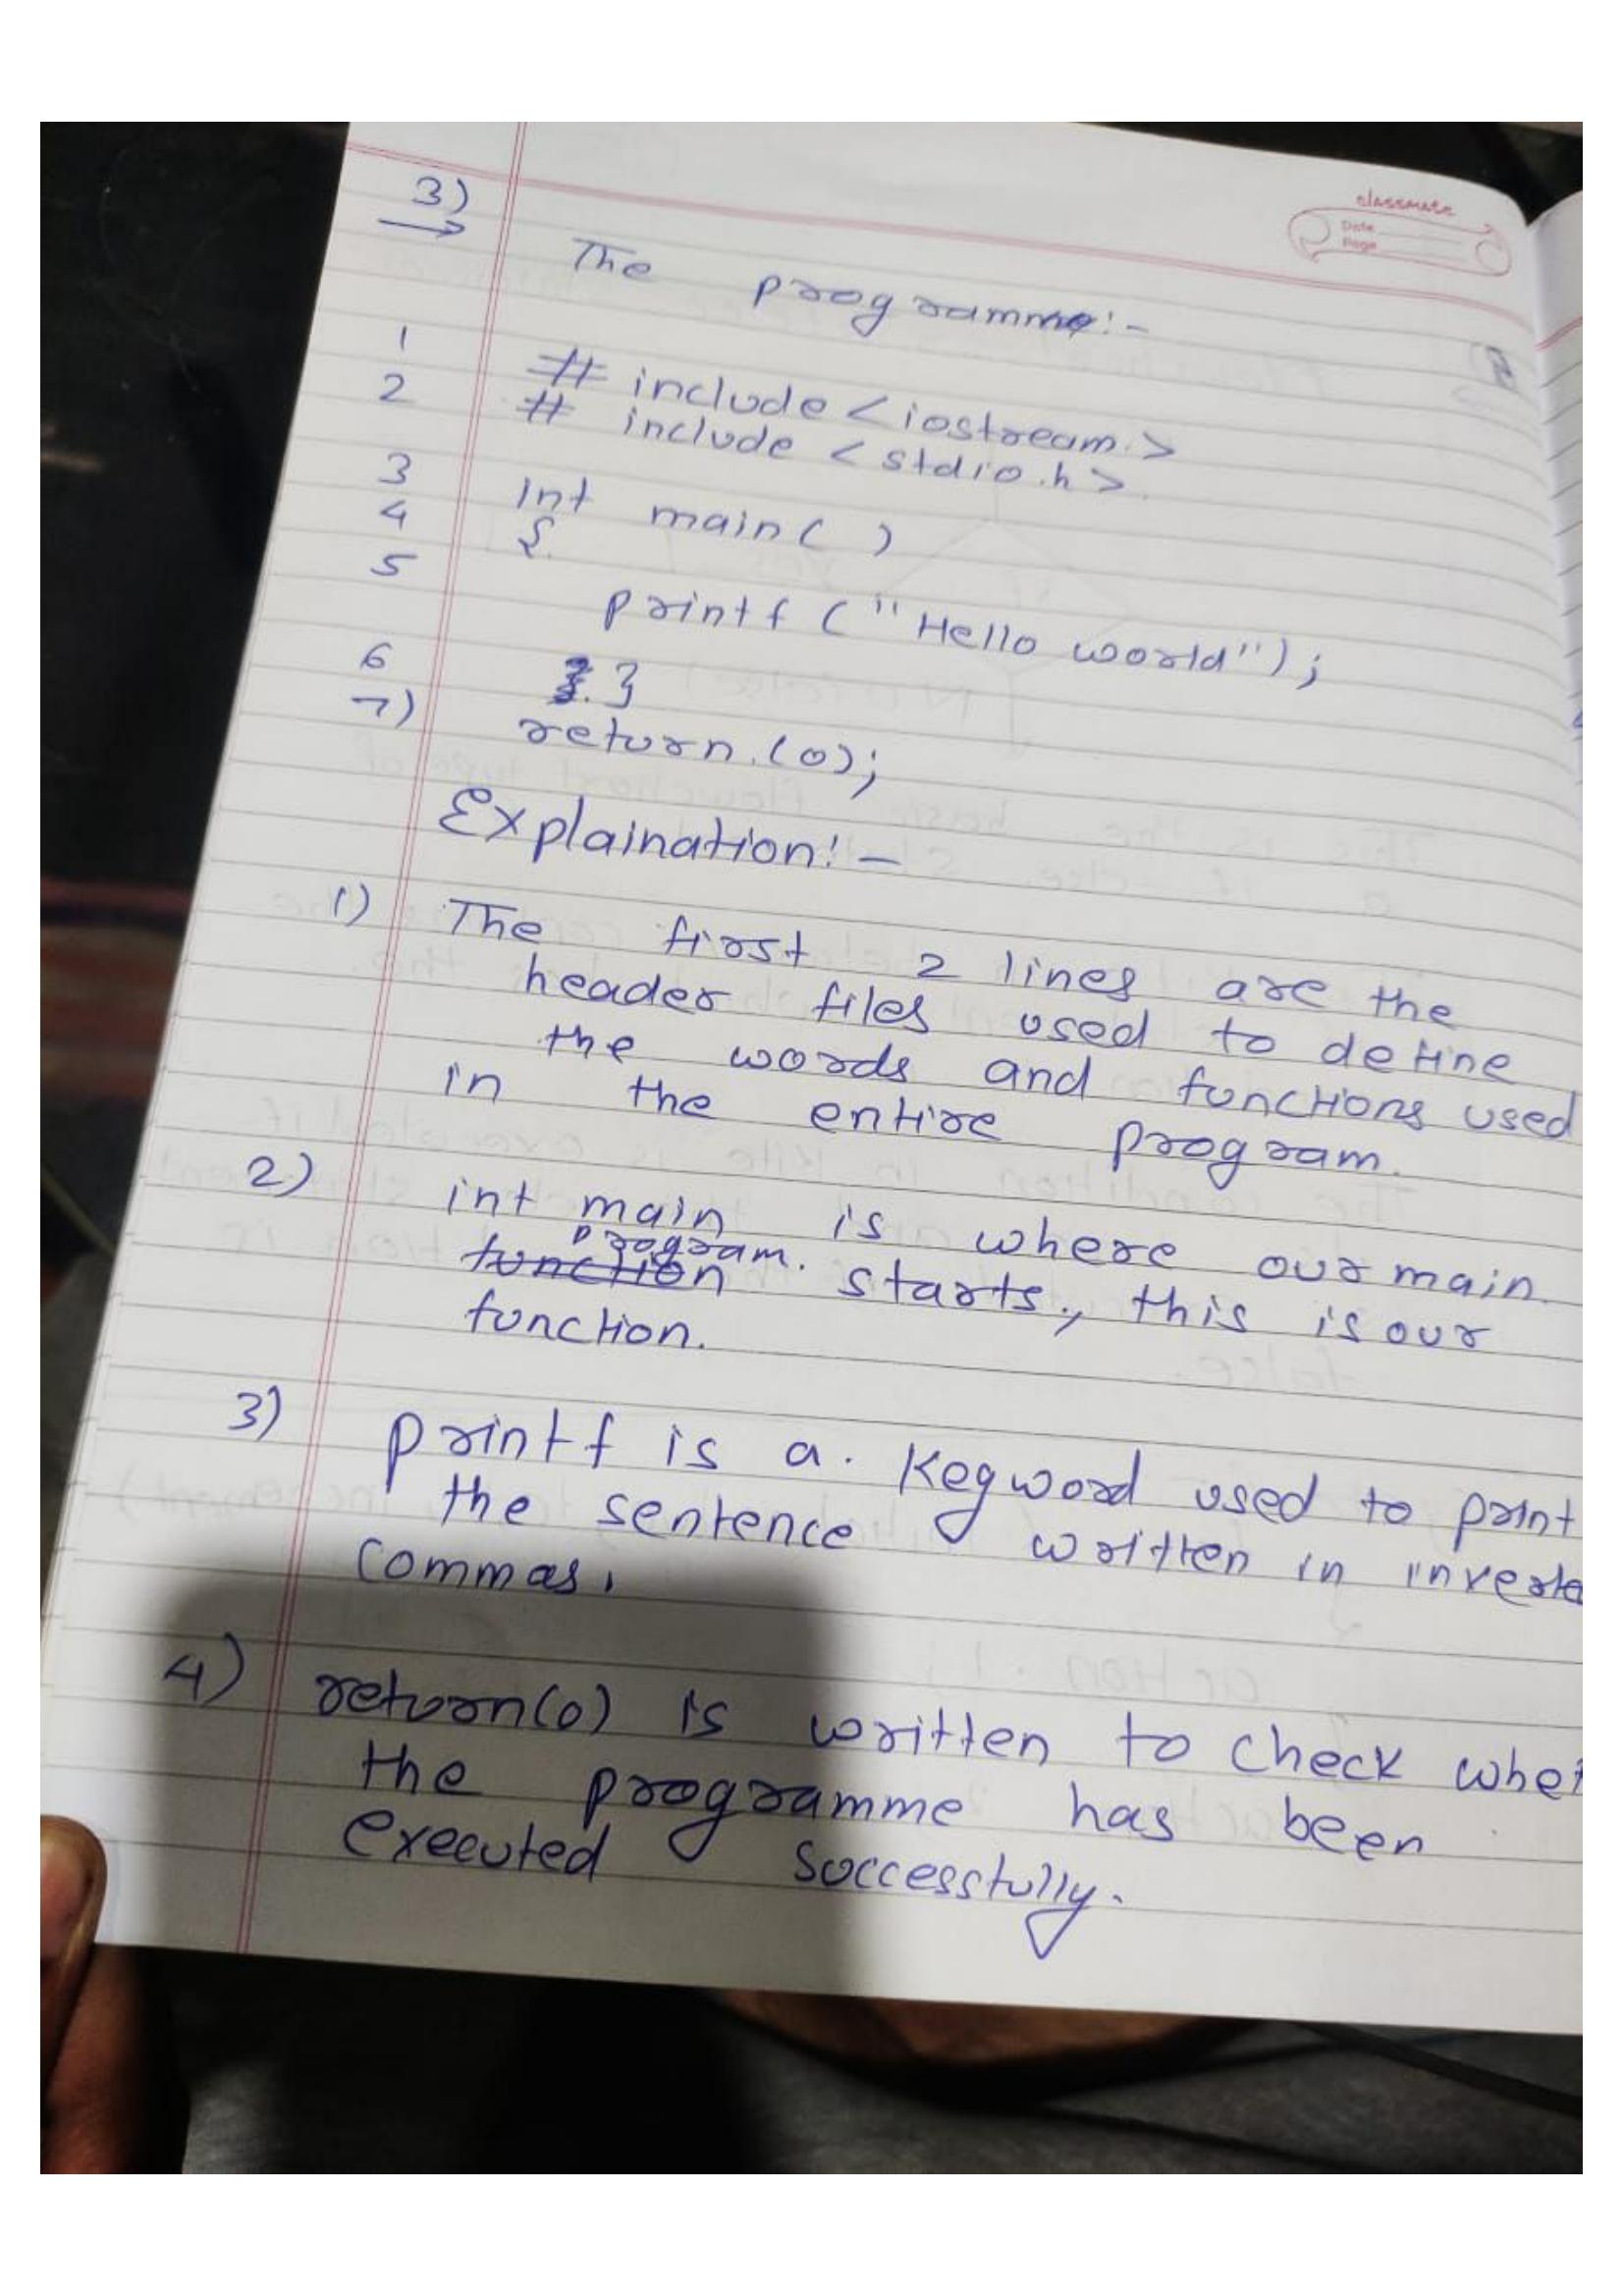 classmate
Date
Page
3)
The programme:-
1 # include <iostream.>
2 # include <stdio.h>
3 int main( )
4 {
5 printf ("Hello world");
6 }
7) return.(0);
Explaination:-
1) The first 2 lines are the
header files used to define
the words and functions used
in the entire program.
2) int main is where our main
program.
function starts, this is our
function.
3) printf is a. Keyword used to print
the sentence written in
commas.
4) return(0) is written to check
the programme has been
executed successfully.